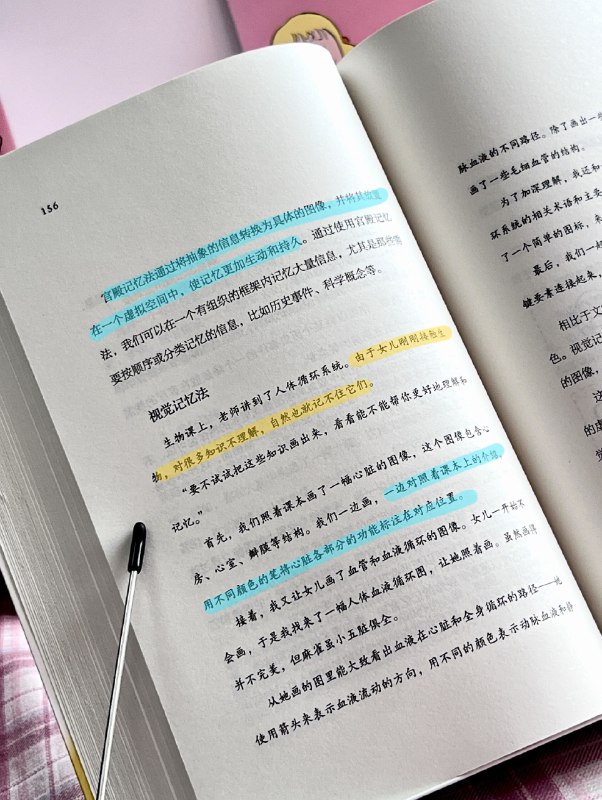 156
宫殿记忆法通过将抽象的信息转换为具体的图像，并将其放置
在一个虚拟空间中，使记忆更加生动和持久。通过使用宫殿记忆
法，我们可以在一个有组织的框架内记忆大量信息，尤其是那些需
要按顺序或分类记忆的信息，比如历史事件、科学概念等。
视觉记忆法
生物课上，老师讲到了人体循环系统。由于女儿刚刚接触生
物，对很多知识不理解，自然也就记不住它们。
“要不试试把这些知识画出来，看看能不能帮你更好地理解和
记忆。”
首先，我们照着课本画了一幅心脏的图像，这个图像包含心
房、心室、瓣膜等结构。我们一边画，一边对照着课本上的介绍，
用不同颜色的笔将心脏各部分的功能标注在对应位置。
接着，我又让女儿画了血管和血液循环的图像。女儿一开始不
会画，于是我找来了一幅人体血液循环图，让她照着画。虽然画得
并不完美，但麻雀虽小五脏俱全。
从她画的图里能大致看出血液在心脏和全身循环的路径——她
使用箭头来表示血液流动的方向，用不同的颜色表示动脉血液和静
脉血液的不同路径。除了画出一些
画了一些毛细血管的结构。
为了加深理解，我还和
环系统的相关术语和主要
了一个简单的图标，来
最后，我们一起
键要素连接起来，
相比于文
色。视觉记
的图像，
这
的虚
觉